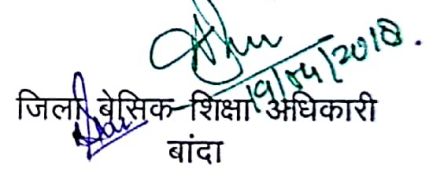 19/04/2018.
जिला बेसिक शिक्षा अधिकारी
बांदा